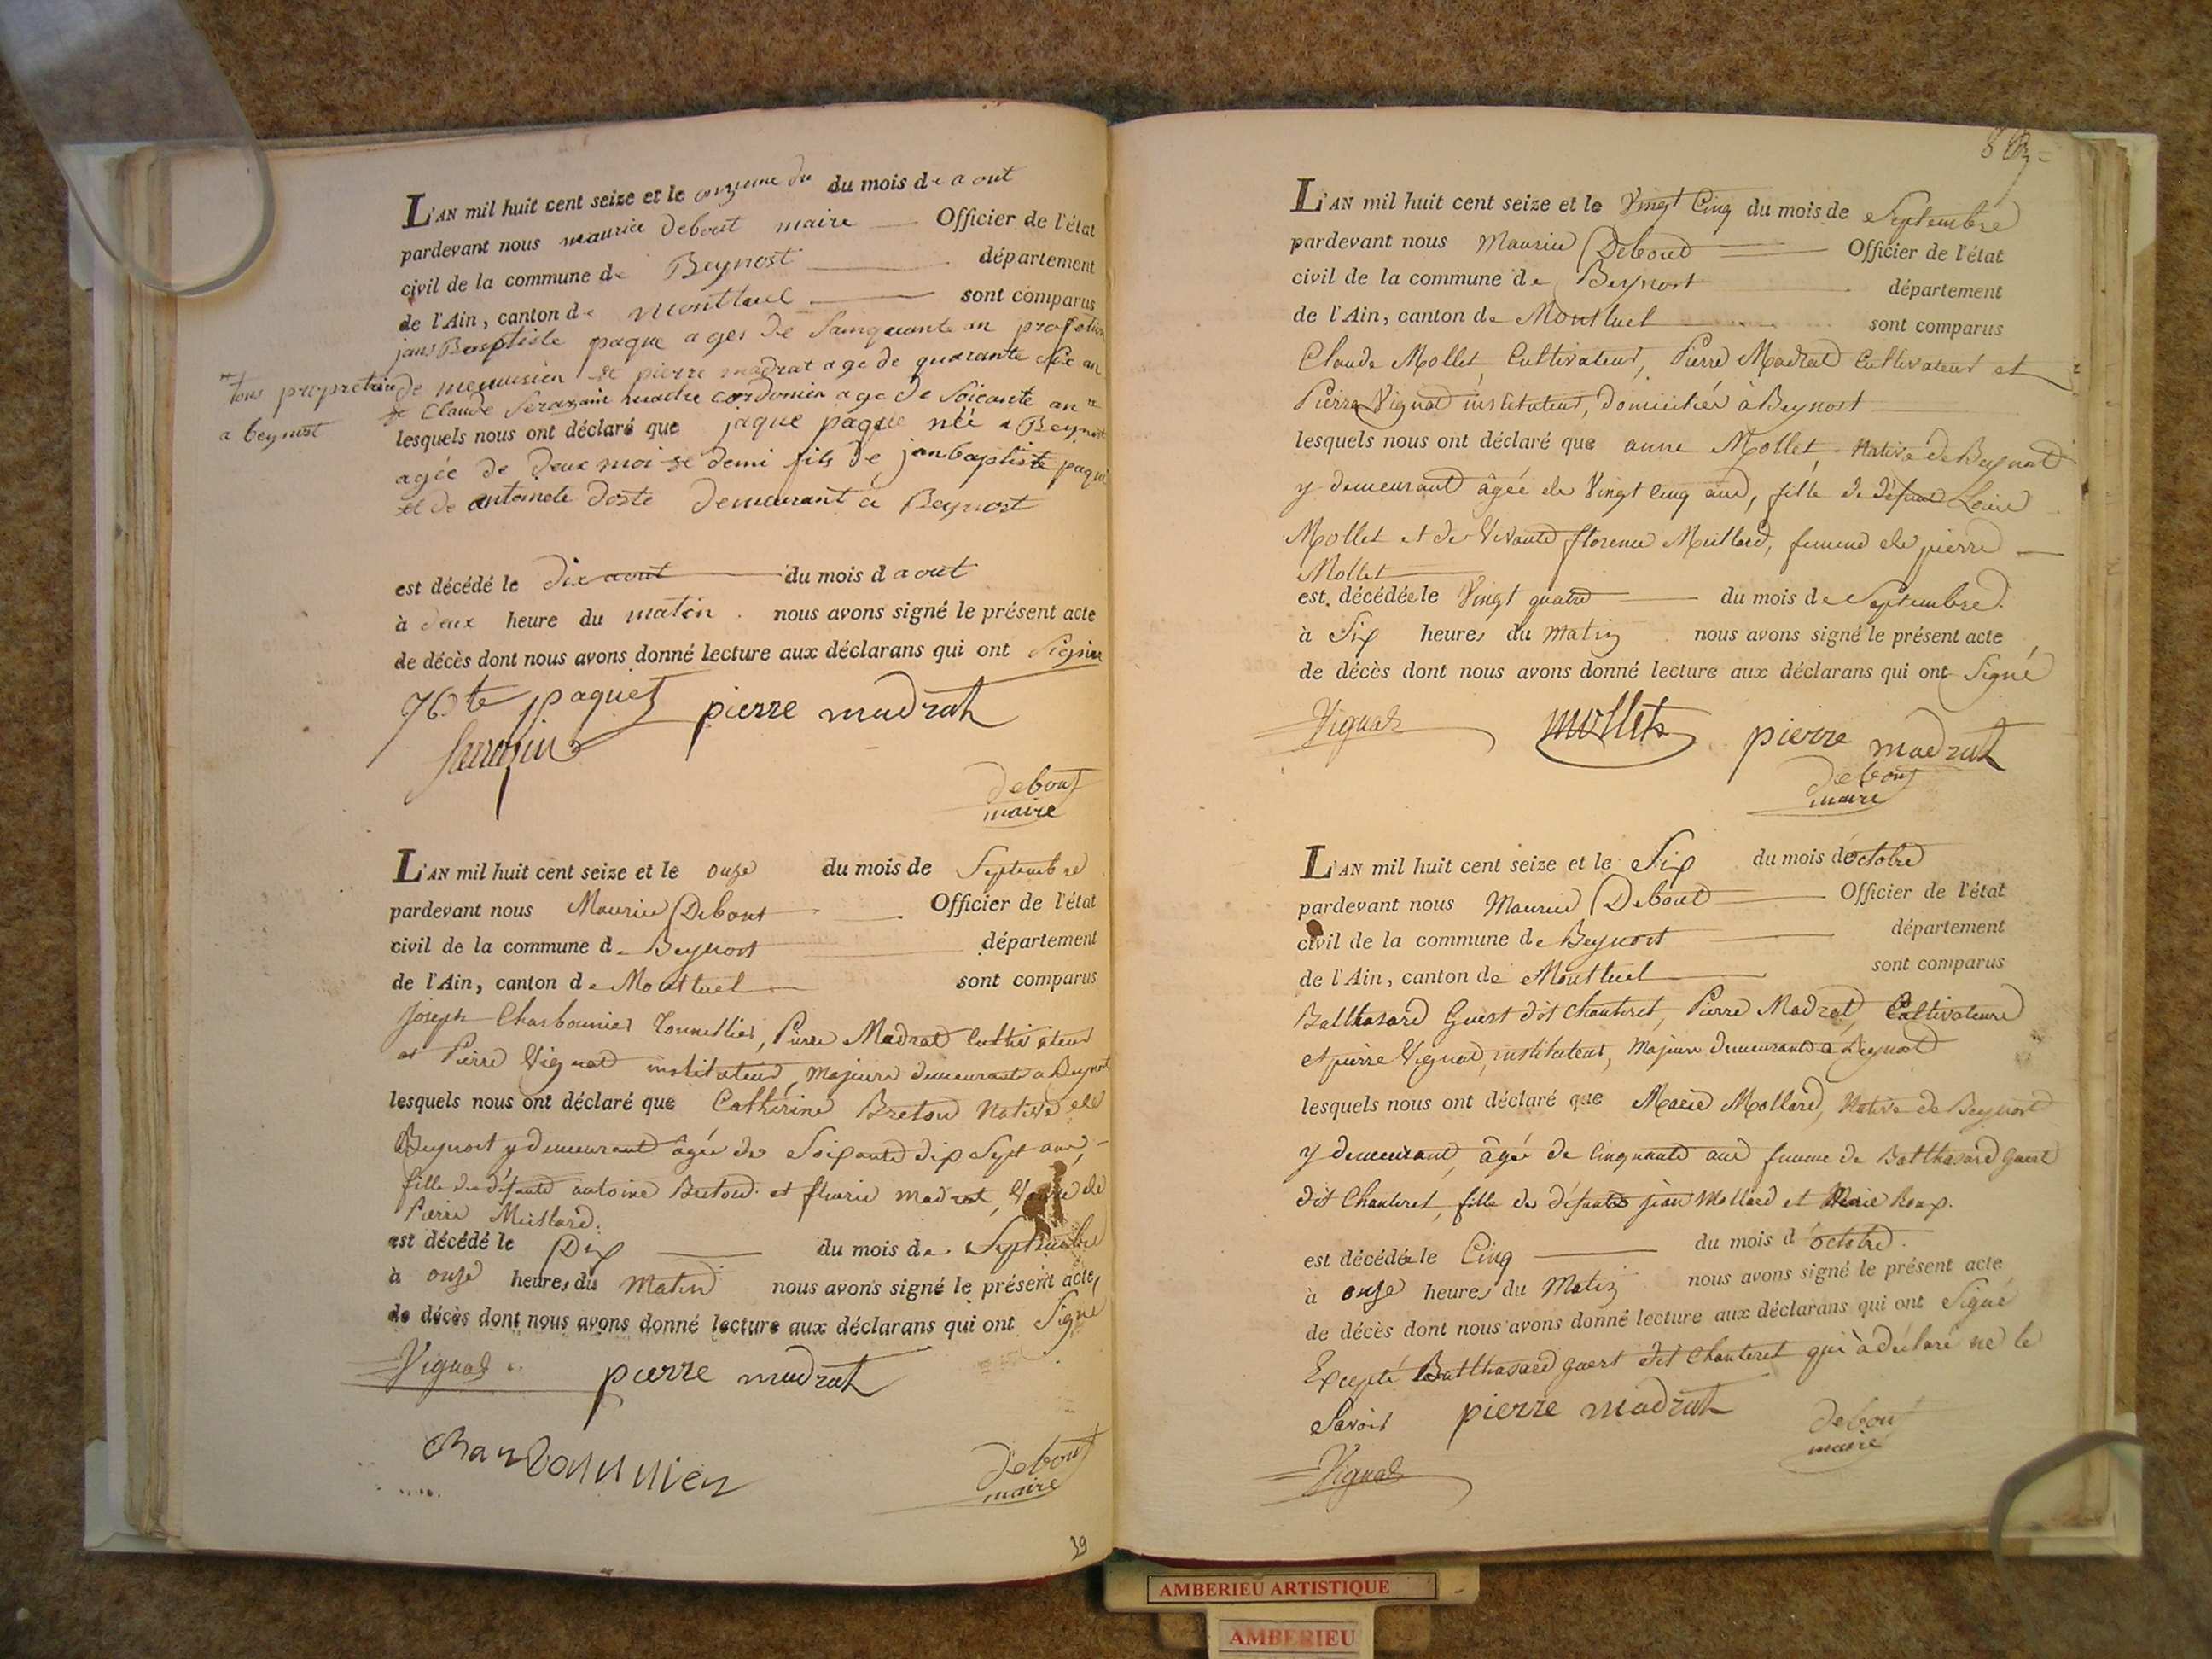 L'AN mil huit cent seize et le onzieme du du mois de aout
pardevant nous maurice Debout maire Officier de l'état
civil de la commune de Beynost département
de l'Ain, canton de montluel sont comparus
jans Baptiste paque ages de Sainquante an profetion
de menuisien et pierre madrat age de quarante six an
et Claude Serazain maitre cordonien age de Soicante an
tous propretaire
a beynost
lesquels nous ont déclaré que jaque paque néé a Beynost
agée de deux moi et demi fils de janbaptiste paque
et de antoinete doste demeurant a Beynost
est décédé le dix aout du mois d aout
à deux heure du matin nous avons signé le présent acte
de décès dont nous avons donné lecture aux déclarans qui ont Signé
JBte paquet pierre madrat
Sarrazin
debout
maire
L'AN mil huit cent seize et le onze du mois de Septembre
pardevant nous Maurice Debout Officier de l'état
civil de la commune de Beynost département
de l'Ain, canton de Montluel sont comparus
Joseph Charbonnier Tonnellier, Pierre Madrat Cultivateur
et Pierre Vignat instituteur, majeurs demeurants a Beynost
lesquels nous ont déclaré que Catherine Breton Native de
Beynost y demeurant âgée de Soixante dix Sept ans,
fille de défunts antoine Breton et fleurie madrat, Veuve de
Pierre Meillard.
est décédé le Dix du mois de Septembre
à onze heures du Matin nous avons signé le présent acte,
de décès dont nous avons donné lecture aux déclarans qui ont Signé
Vignat pierre madrat
Charbonnier
debout
maire
39
L'AN mil huit cent seize et le Vingt Cinq du mois de Septembre
pardevant nous Maurice Debout Officier de l'état
civil de la commune de Beynost département
de l'Ain, canton de Montluel sont comparus
Claude Mollet, Cultivateur, Pierre Madrat Cultivateur et
Pierre Vignat instituteur, domiciliés à Beynost
lesquels nous ont déclaré que anne Mollet, Native de Beynost
y demeurant âgée de Vingt Cinq ans, fille de défunt Louis
Mollet et de Vivante florence Meillard, femme de pierre
Mollet
est décédée le Vingt quatre du mois de Septembre.
à Six heures du Matin nous avons signé le présent acte
de décès dont nous avons donné lecture aux déclarans qui ont Signé
Vignat mollet pierre madrat
debout
maire
L'AN mil huit cent seize et le Six du mois d'octobre
pardevant nous Maurice Debout Officier de l'état
civil de la commune de Beynost département
de l'Ain, canton de Montluel sont comparus
Balthasard Guers dit Chanteret, Pierre Madrat, Cultivateurs
et pierre Vignat, instituteur, Majeurs demeurants a Beynost
lesquels nous ont déclaré que Marie Mollard, Native de Beynost
y demeurant, âgée de Cinquante ans femme de Balthasard guers
dit Chanteret, fille de défunts jean Mollard et Marie Roux.
est décédée le Cinq du mois d'octobre.
à onze heures du Matin nous avons signé le présent acte
de décès dont nous avons donné lecture aux déclarans qui ont Signé
Excepté Balthasard guers dit Chanteret qui à déclaré ne le
Savoir pierre madrat debout
maire
Vignat
AMBERIEU ARTISTIQUE
AMBERIEU